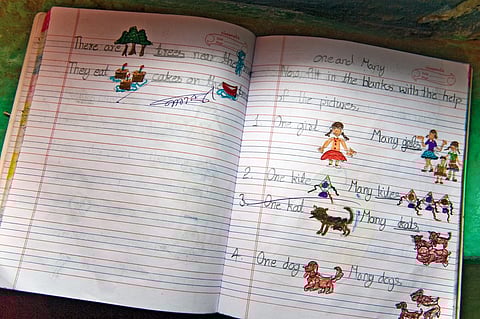 There are trees near the
They eat cakes on the
one and Many
Now fill in the blanks with the help
of the pictures.
1. One girl Many girls
2. One kite Many kites
3. One kat Many cats
4. One dog Many dogs